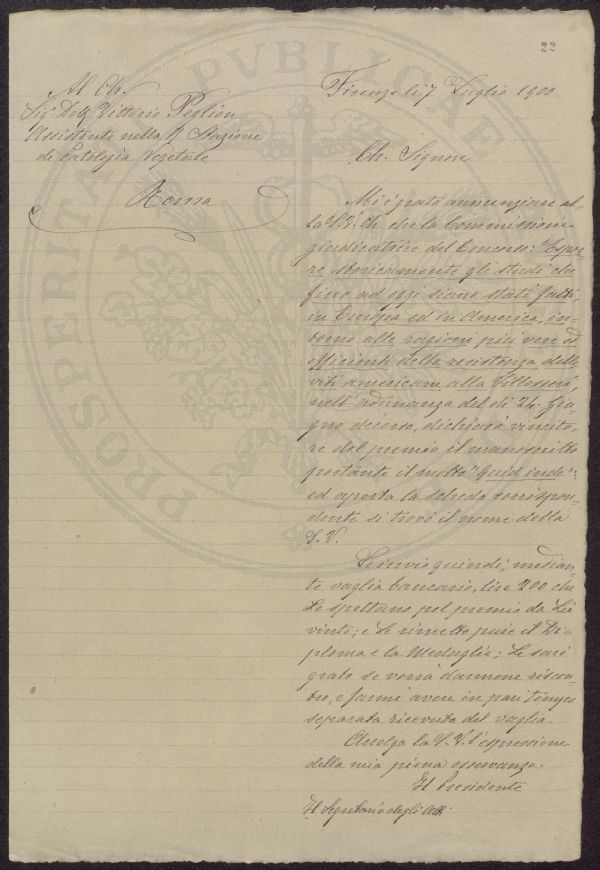 22
Al Ch.
Sigr Dott Vittorio Peglion
Assistente nella R Stazione
di Patologia Vegetale
Roma
Firenze li 7 Luglio 1900
Ch. Signore
Mi è grato annunziare al-
la S.V. Ch. che la Commissione
giudicatrice del Concorso: "Espor-
re storicamente gli studi che
fino ad oggi siano stati fatti,
in Europa ed in America, in-
torno alle ragioni più vere ed
efficienti della resistenza delle
viti americane alla Fillossera",
nell'adunanza del dì 24 Giu-
gno decorso, dichiarò vincito-
re del premio il manoscritto
portante il motto "Quid inde":
ed aperta la scheda corrispon-
dente si trovò il nome della
S.V.
Le invio quindi, median-
te vaglia bancario, lire 200 che
Le spettano pel premio da Lei
vinto; e Le rimetto pure il Di-
ploma e la Medaglia; Le sarò
grato se vorrà darmene riscon-
tro, e farmi avere in pari tempo
separata ricevuta del vaglia.
Accolga la S.V. l'espressione
della mia piena osservanza.
Il Presidente
Il Segretario degli Atti
PROSPERITA PVBLICAE